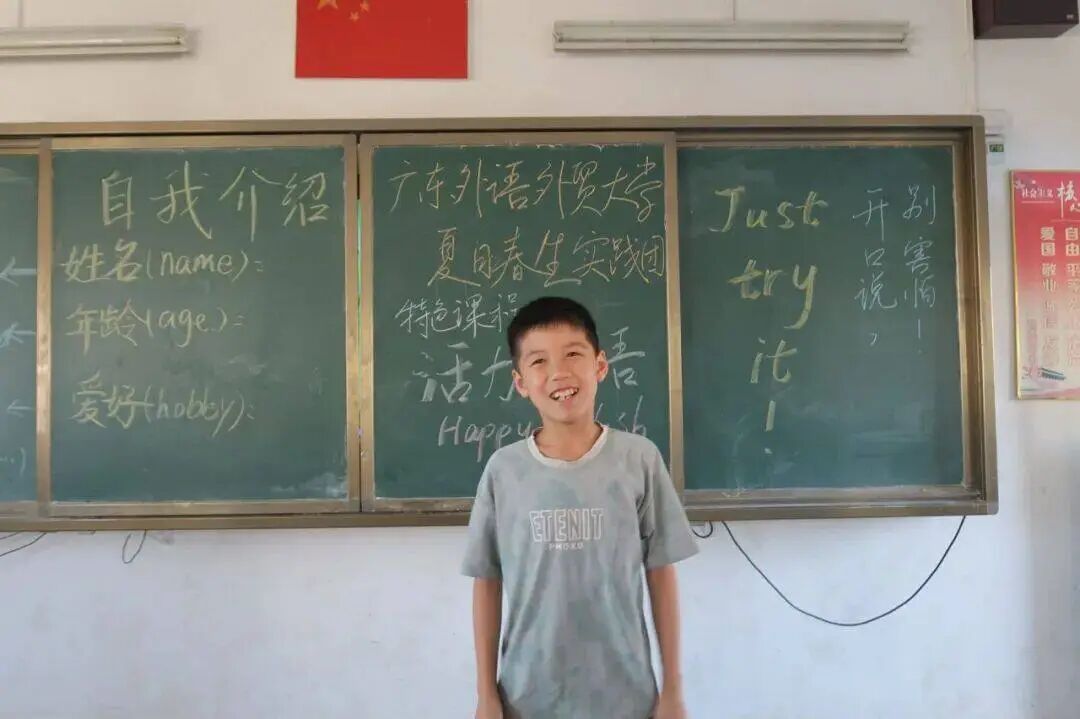 自我介绍
姓名(name):
年龄(age):
爱好(hobby):
广东外语外贸大学
夏日春生实践团
特色课程
活力
语
Happy
sh
Just
try
it
!
别害怕!
开口说,
社会主义
爱国 敬业
自由 平
ETENIT